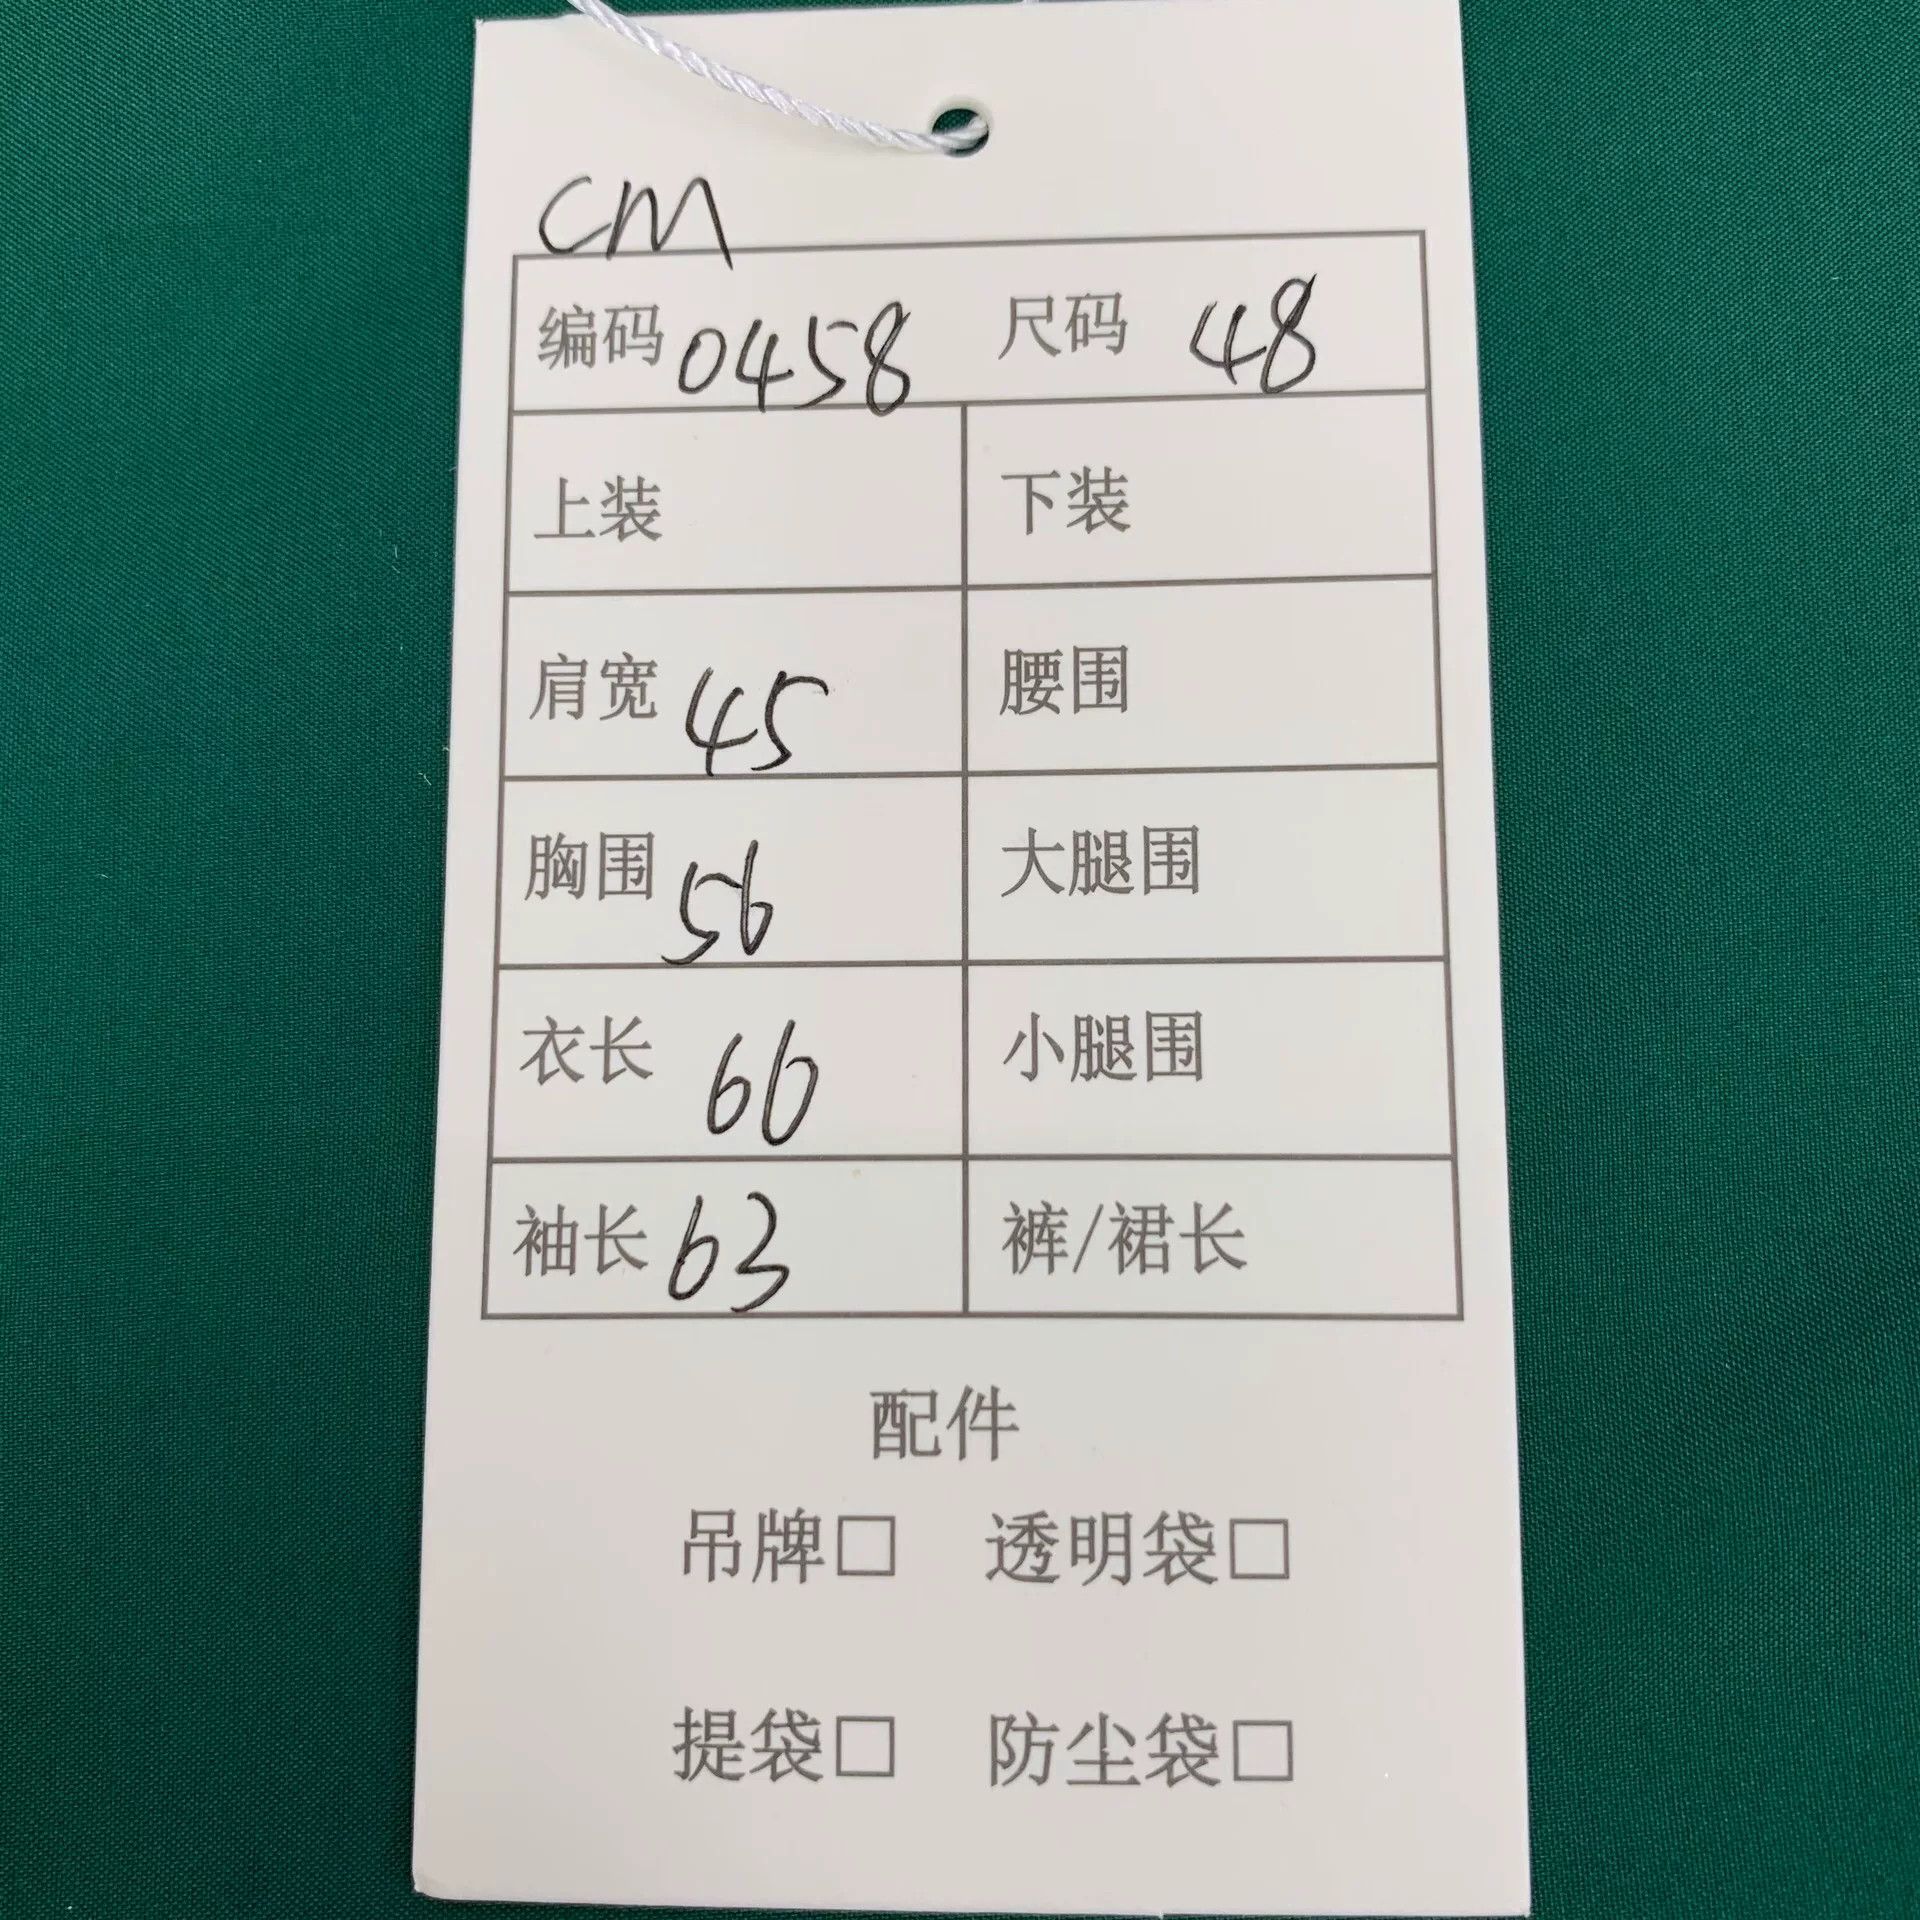 CM
编码 0458 尺码 48
上装 下装
肩宽 45 腰围
胸围 56 大腿围
衣长 60 小腿围
袖长 63 裤/裙长
配件
吊牌□ 透明袋□
提袋□ 防尘袋□